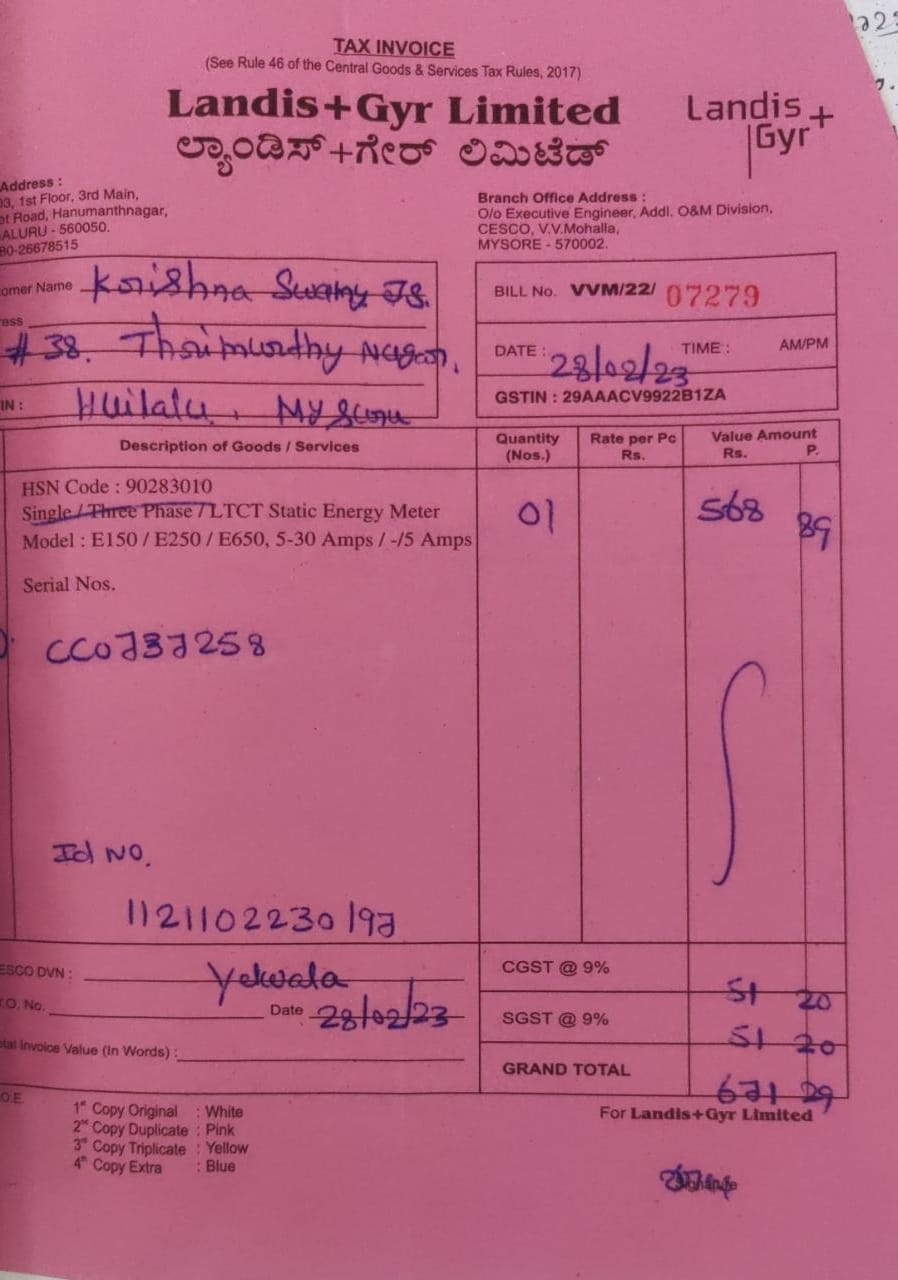 TAX INVOICE
(See Rule 46 of the Central Goods & Services Tax Rules, 2017)
Landis+Gyr Limited
ಲ್ಯಾಂಡಿಸ್+ಗೇರ್ ಲಿಮಿಟೆಡ್
Landis+
Gyr
Address :
03, 1st Floor, 3rd Main,
ot Road, Hanumanthnagar,
ALURU - 560050.
80-26678515
Branch Office Address :
O/o Executive Engineer, Addl. O&M Division,
CESCO, V.V.Mohalla,
MYSORE - 570002.
omer Name Krishna Swamy JS.
ress
# 38. Thrimurthy Nagar,
IN : Huilalu, Mysuru
BILL No. VVM/22/ 07279
DATE : 28/02/23 TIME : AM/PM
GSTIN : 29AAACV9922B1ZA
Description of Goods / Services Quantity (Nos.) Rate per Pc Rs. Value Amount Rs. P.
HSN Code : 90283010
Single / Three Phase / LTCT Static Energy Meter 01 568 89
Model : E150 / E250 / E650, 5-30 Amps / -/5 Amps
Serial Nos.
CC0737258
Id NO.
1121102230197
ESCO DVN : Yelwala
.O. No. Date 28/02/23
tal Invoice Value (In Words) :
CGST @ 9% 51 20
SGST @ 9% 51 20
GRAND TOTAL 671 29
.O.E.
1st Copy Original : White
2nd Copy Duplicate : Pink
3rd Copy Triplicate : Yellow
4th Copy Extra : Blue
For Landis+Gyr Limited